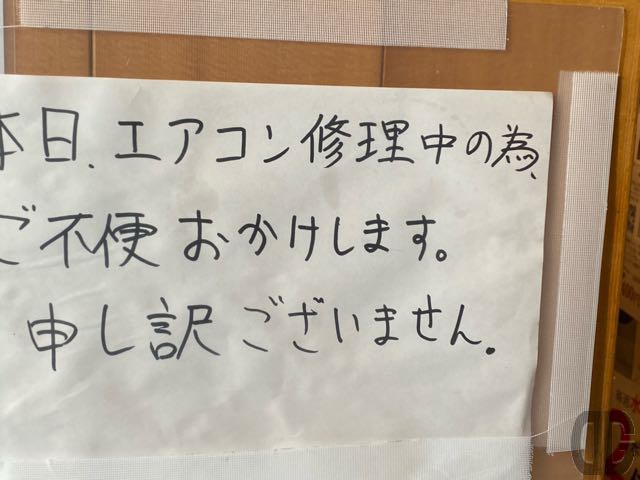 本日、エアコン修理中の為、
ご不便おかけします。
申し訳ございません。